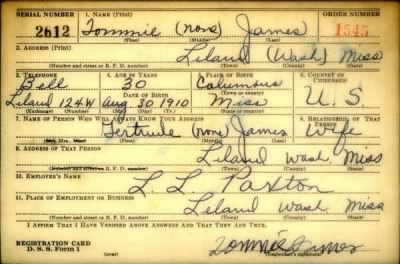 SERIAL NUMBER 1. NAME (Print) ORDER NUMBER
2612 Tommie (None) James 1545
(First) (Middle) (Last)
2. ADDRESS (Print)
Leland (Wash) Miss
(Number and street or R. F. D. number) (Town) (County) (State)
3. TELEPHONE 4. AGE IN YEARS 5. PLACE OF BIRTH 6. COUNTRY OF CITIZENSHIP
Bell 30 Columbus
DATE OF BIRTH (Town or county)
Leland 124W Aug. 30 1910 Miss U. S.
(Exchange) (Number) (Mo.) (Day) (Yr.) (State or country)
7. NAME OF PERSON WHO WILL ALWAYS KNOW YOUR ADDRESS 8. RELATIONSHIP OF THAT PERSON
Gertrude (None) James Wife
(Mr., Mrs., Miss) (First) (Middle) (Last)
9. ADDRESS OF THAT PERSON
Leland Wash. Miss
(Number and street or R. F. D. number) (Town) (County) (State)
10. EMPLOYER'S NAME
L. L. Paxton
11. PLACE OF EMPLOYMENT OR BUSINESS
Leland Wash Miss
(Number and street or R. F. D. number) (Town) (County) (State)
I AFFIRM THAT I HAVE VERIFIED ABOVE ANSWERS AND THAT THEY ARE TRUE.
REGISTRATION CARD
D. S. S. Form 1 (over) Tommie James
(Registrant's signature)